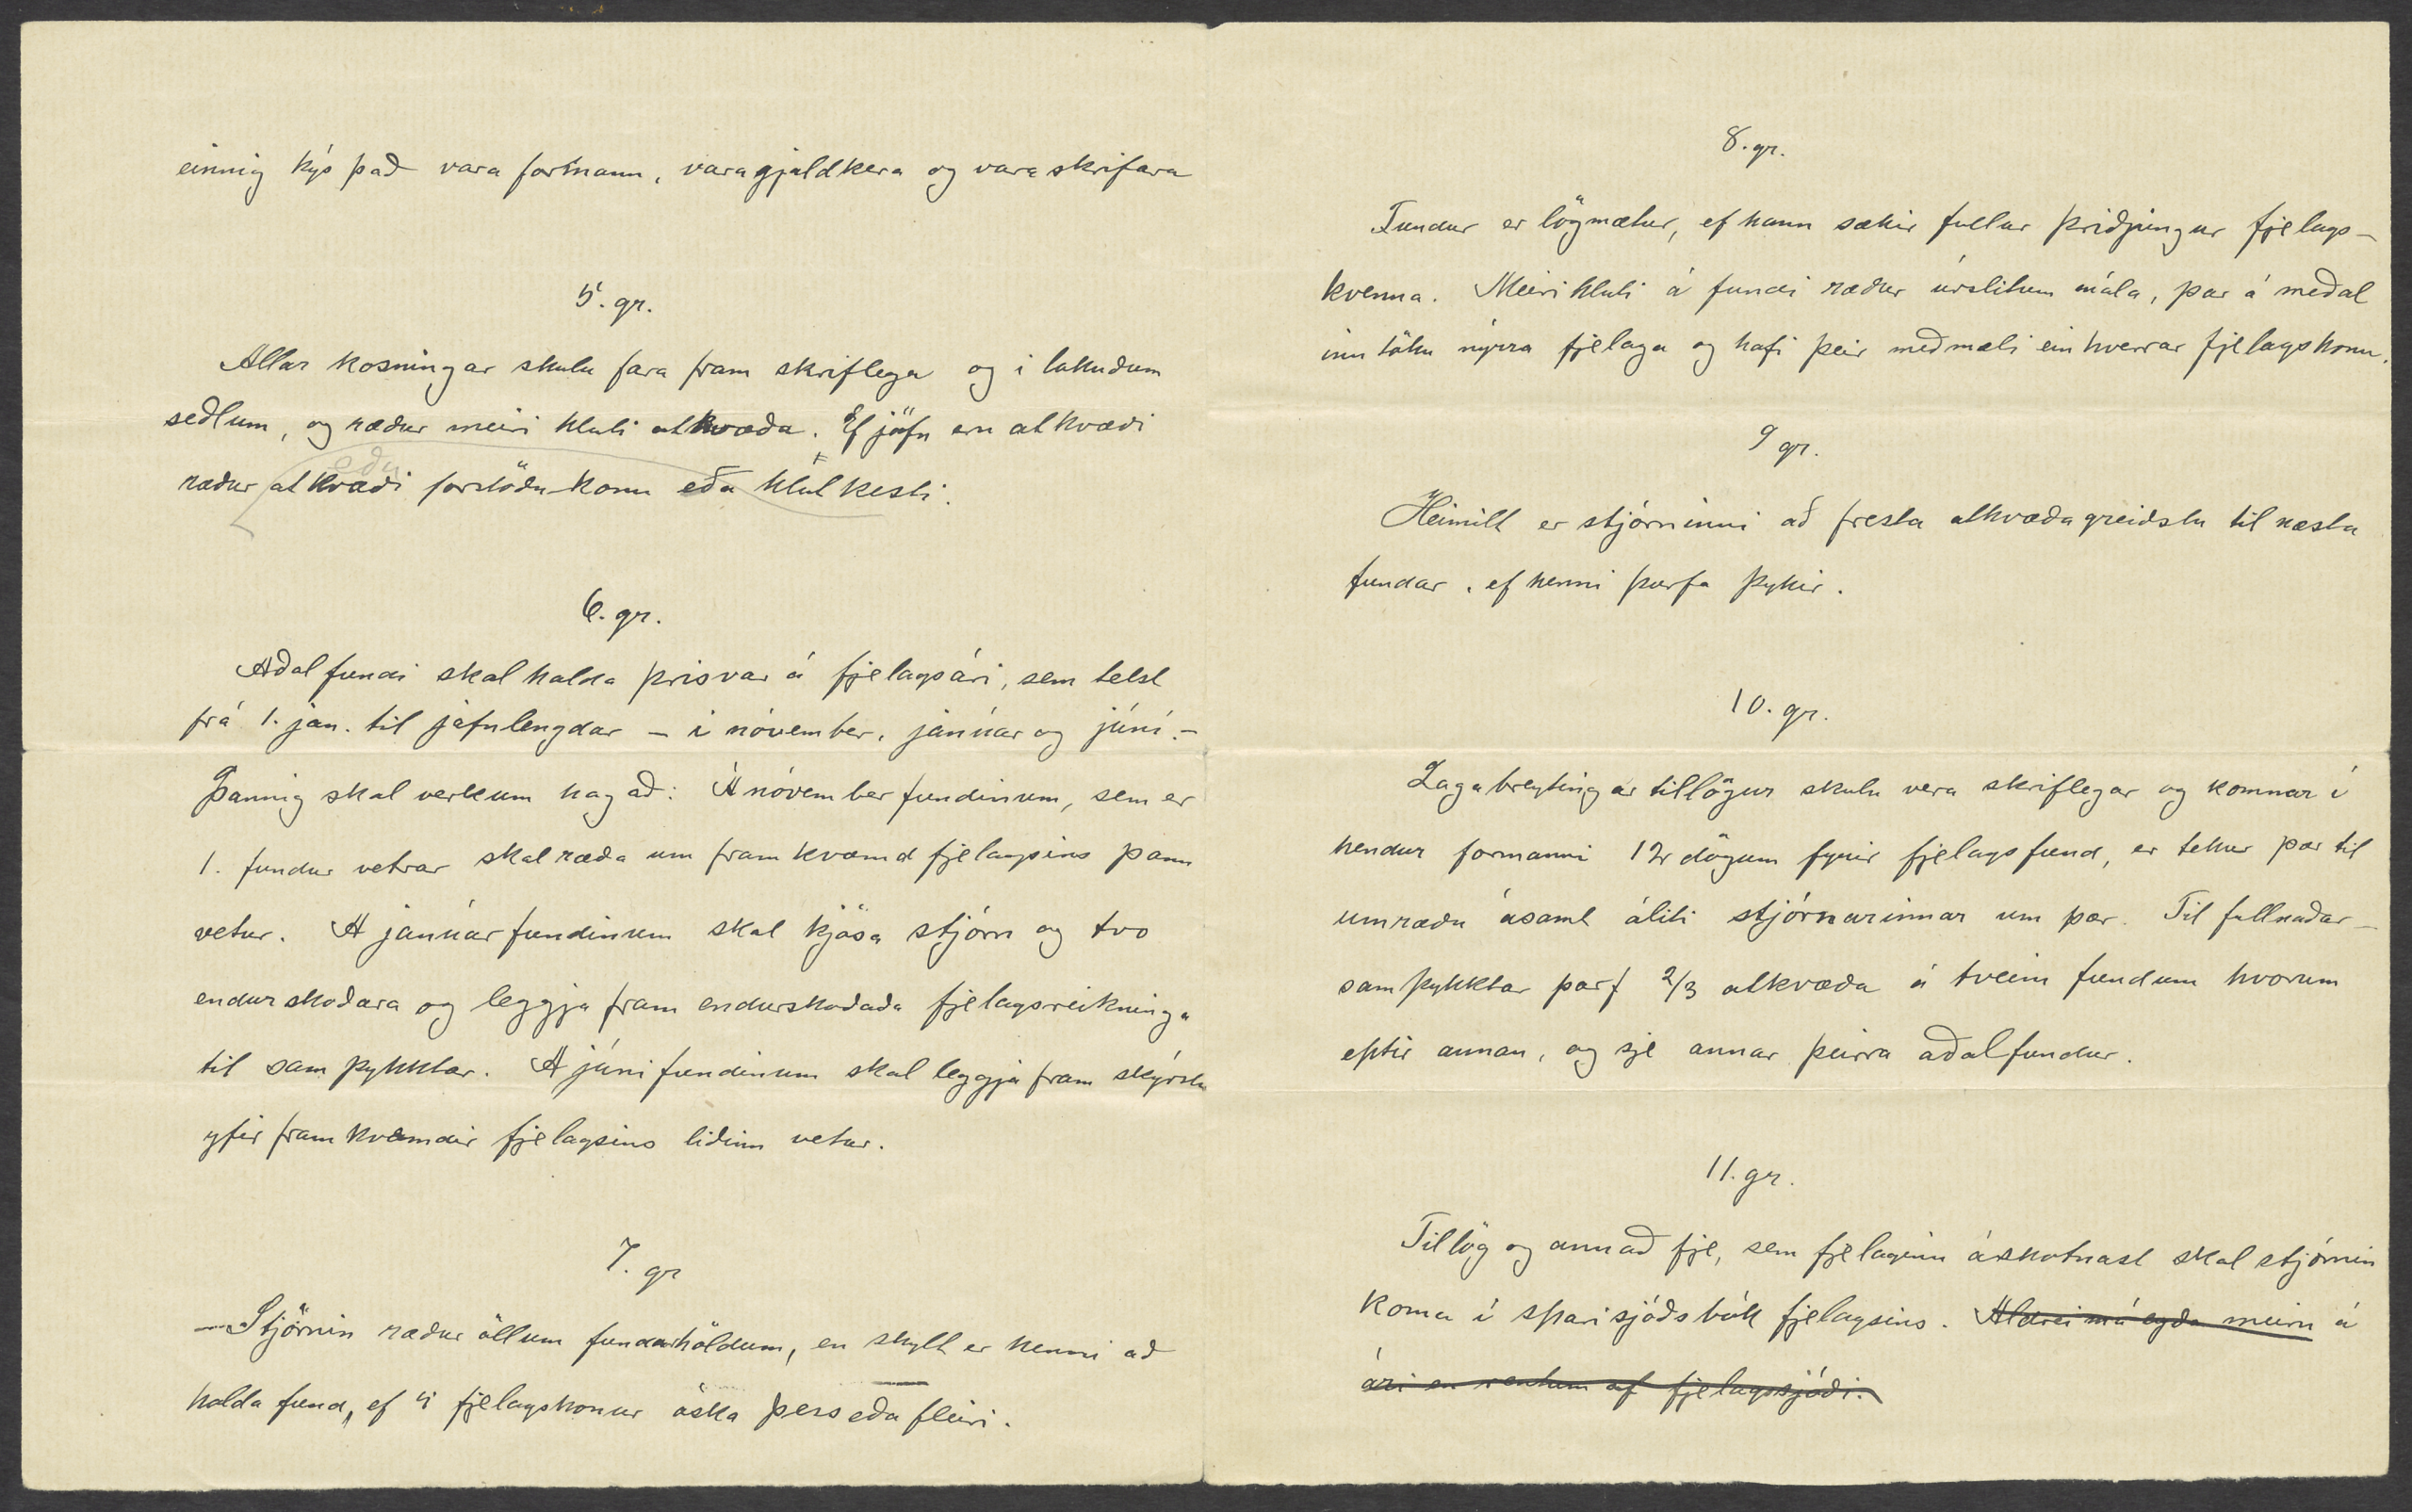 einnig kýs það vara formann, varagjaldkera og vara skrifara
5. gr.
Allar kosningar skulu fara fram skriflega og í lokuðum
seðlum, og ræður meiri hluti atkvæða. Ef jöfn eru atkvæði
eða
ræður atkvæði forstöðu-konu eða hlutkesti.
6. gr.
Aðalfundi skal halda þrisvar á fjelagsári, sem telst
frá 1. jan. til jafnlengdar – í nóvember, janúar og júní. –
Þannig skal verkum hagað: Á nóvember fundinum, sem er
1. fundur vetrar skal ræða um framkvæmd fjelagsins þann
vetur. A janúarfundinum skal kjósa stjórn og tvo
endurskoðara og leggja fram endurskoðaða fjelagsreikninga
til samþykktar. A júnifundinum skal leggja fram skýrslu
yfir framkvæmdir fjelagsins liðinn vetur.
7. gr
– Stjórnin ræður öllum fundarhöldum, en skylt er henni að
halda fund, ef 4 fjelagskonur óska þess eða fleiri.
8. gr.
Fundur er lögmætur, ef hann sækir fullur þriðjungur fjelags-
kvenna. Meirihluti á fundi ræður úrslitum mála, þar á meðal
inntöku nýrra fjelaga og hafi þeir meðmæli einhverrar fjelagskonu.
9 gr.
Heimilt er stjórninni að fresta atkvæðagreiðslu til næsta
fundar, ef henni þurfa þykir.
10. gr.
Lagabreytingar tillögur skulu vera skriflegar og komnar í
hendur formanni 12 dögum fyrir fjelagsfund, er tekur þær til
umræðu ásamt áliti stjórnarinnar um þær. Til fullnaðar-
samþykktar þarf 2/3 atkvæða á tveim fundum hvorum
eptir annan, og sje annar þeirra aðalfundur.
11. gr.
Tillög og annað fje, sem fjelaginu áskotnast skal stjórnin
koma í sparisjóðsbók fjelagsins. Aldrei má eyða meiru á
ári en rentum af fjelagssjóði.